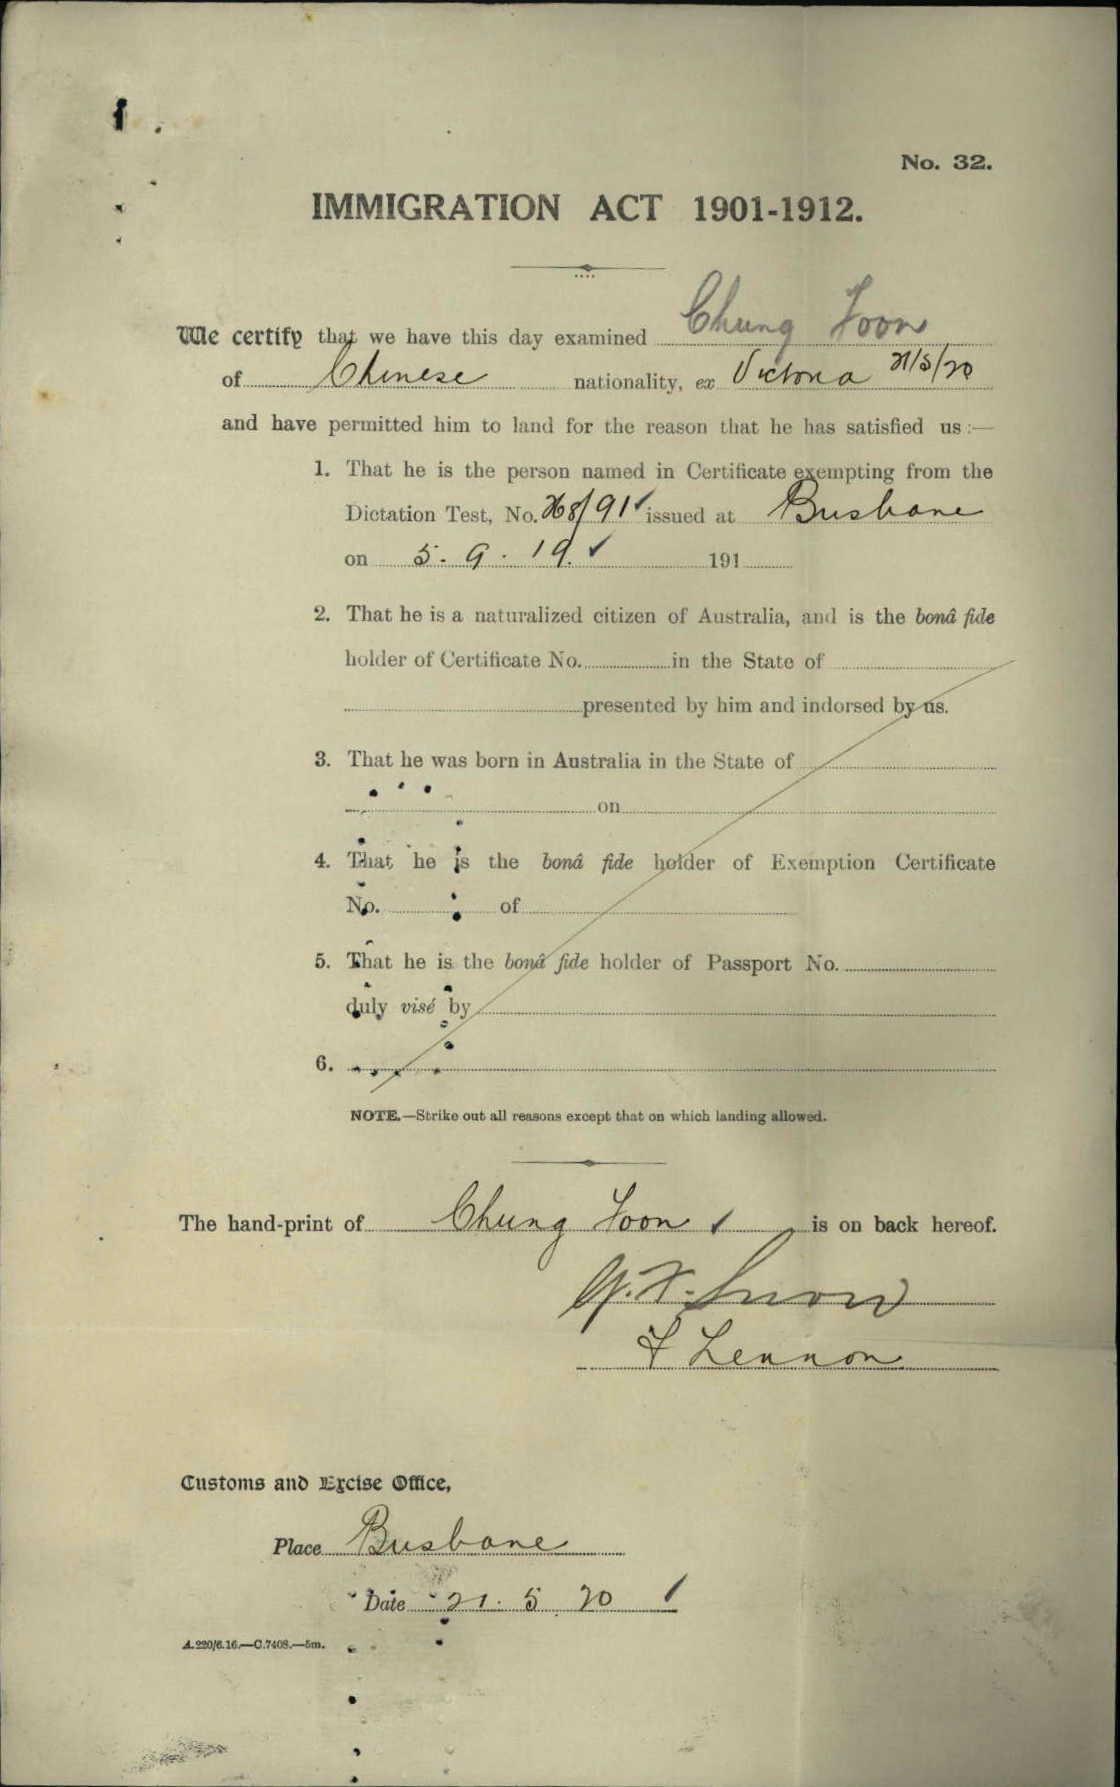 No. 32.
IMMIGRATION ACT 1901-1912.
We certify that we have this day examined Chung Foon
of Chinese nationality, ex Victoria 21/5/20
and have permitted him to land for the reason that he has satisfied us :—
1. That he is the person named in Certificate exempting from the
Dictation Test, No. 268/91 issued at Brisbane
on 5. 9. 19. 191
2. That he is a naturalized citizen of Australia, and is the bonâ fide
holder of Certificate No. in the State of
presented by him and indorsed by us.
3. That he was born in Australia in the State of
on
4. That he is the bonâ fide holder of Exemption Certificate
No. of
5. That he is the bonâ fide holder of Passport No.
duly visé by
6.
NOTE.—Strike out all reasons except that on which landing allowed.
The hand-print of Chung Foon is on back hereof.
Snow
F Lennon
Customs and Excise Office,
Place Brisbane
Date 21. 5. 20
A.220/6.16.—C.7408.—5m.